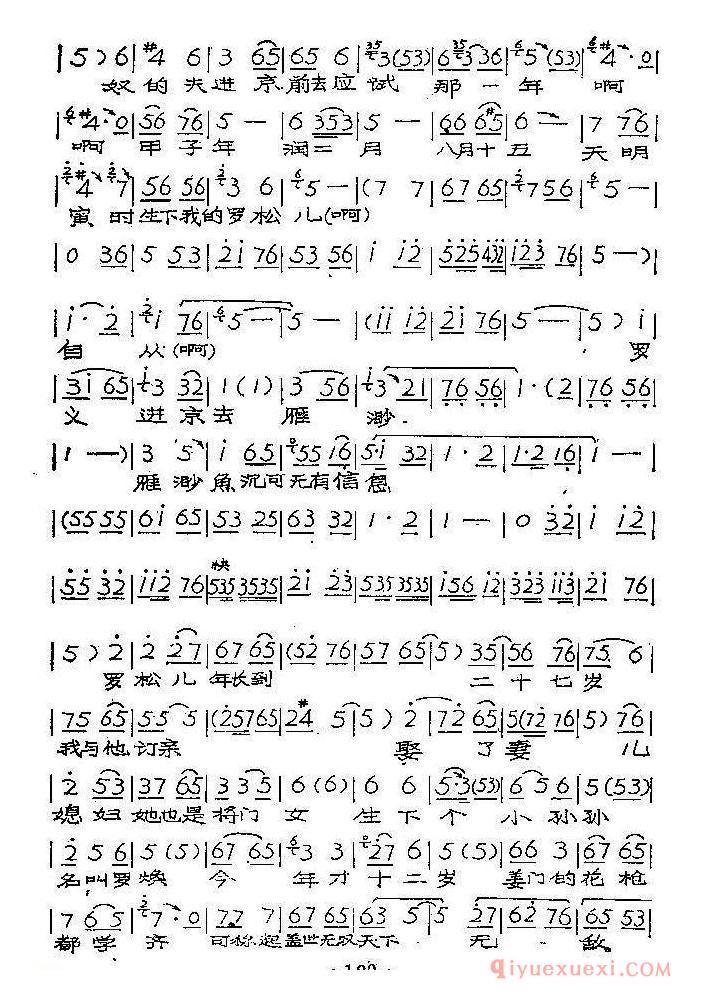 |5)6|#4 6|3 65|65 6|3(53)|6 3 36|5(53)|#4·0|
奴的夫进京前去应试那一年啊
|#4·0|56 76|5 —|6 353|5 —|66 65|6 —|7 76|
啊甲子年润二月八月十五天明
|#4 7|56 56|3 6|5 —|(7 7|67 65|7 56|5 —|
寅时生下我的罗松儿(啊)
|0 36|5 53|21 76|53 56|1 12|525432|32 76|5 —)|
|1·2|1 76|5 —|5 —|(11 12|21 76|5 —|5)|
自从(啊) 罗
|31 65|3 32|1(1)|3 56|3 21|76 56|1·(2|76 56|
义进京去雁渺
|1 —)|3 5|1 65|55 16|5·1 32|1·2|1·2 16|1 —|
雁渺鱼沉可无有信息
|(55 55|61 65|53 25|63 32|1·2|1 —|0 32|1 12|
快
|55 32|112 76|535 3535|21 23|535 3535|156 12|323 113|21 76|
|5)2|2 27|67 65|(52 76|57 65|5)35|56 76|75 6|
罗松儿年长到二十七岁
|75 65|55 5|(25765|2#4 5|5)2|72 65|5(72 76|5)76|
我与他订亲娶了妻儿
|2 53|37 65|33 5|6(6)|6 6|5·3(53)|6 5 6|5(53)|
媳妇她也是将门女生下个小孙孙
|2 5 6|5(5)|67 65|3 3|27 6|5(5)|66 3|67 65|
名叫罗焕今年才十二岁姜门的花枪
|7 65|7·0|77 7|67 65|63 5|5 27|62 76|65 53|
都学齐可称起盖世无双天下无敌
qiyuexuexi.com